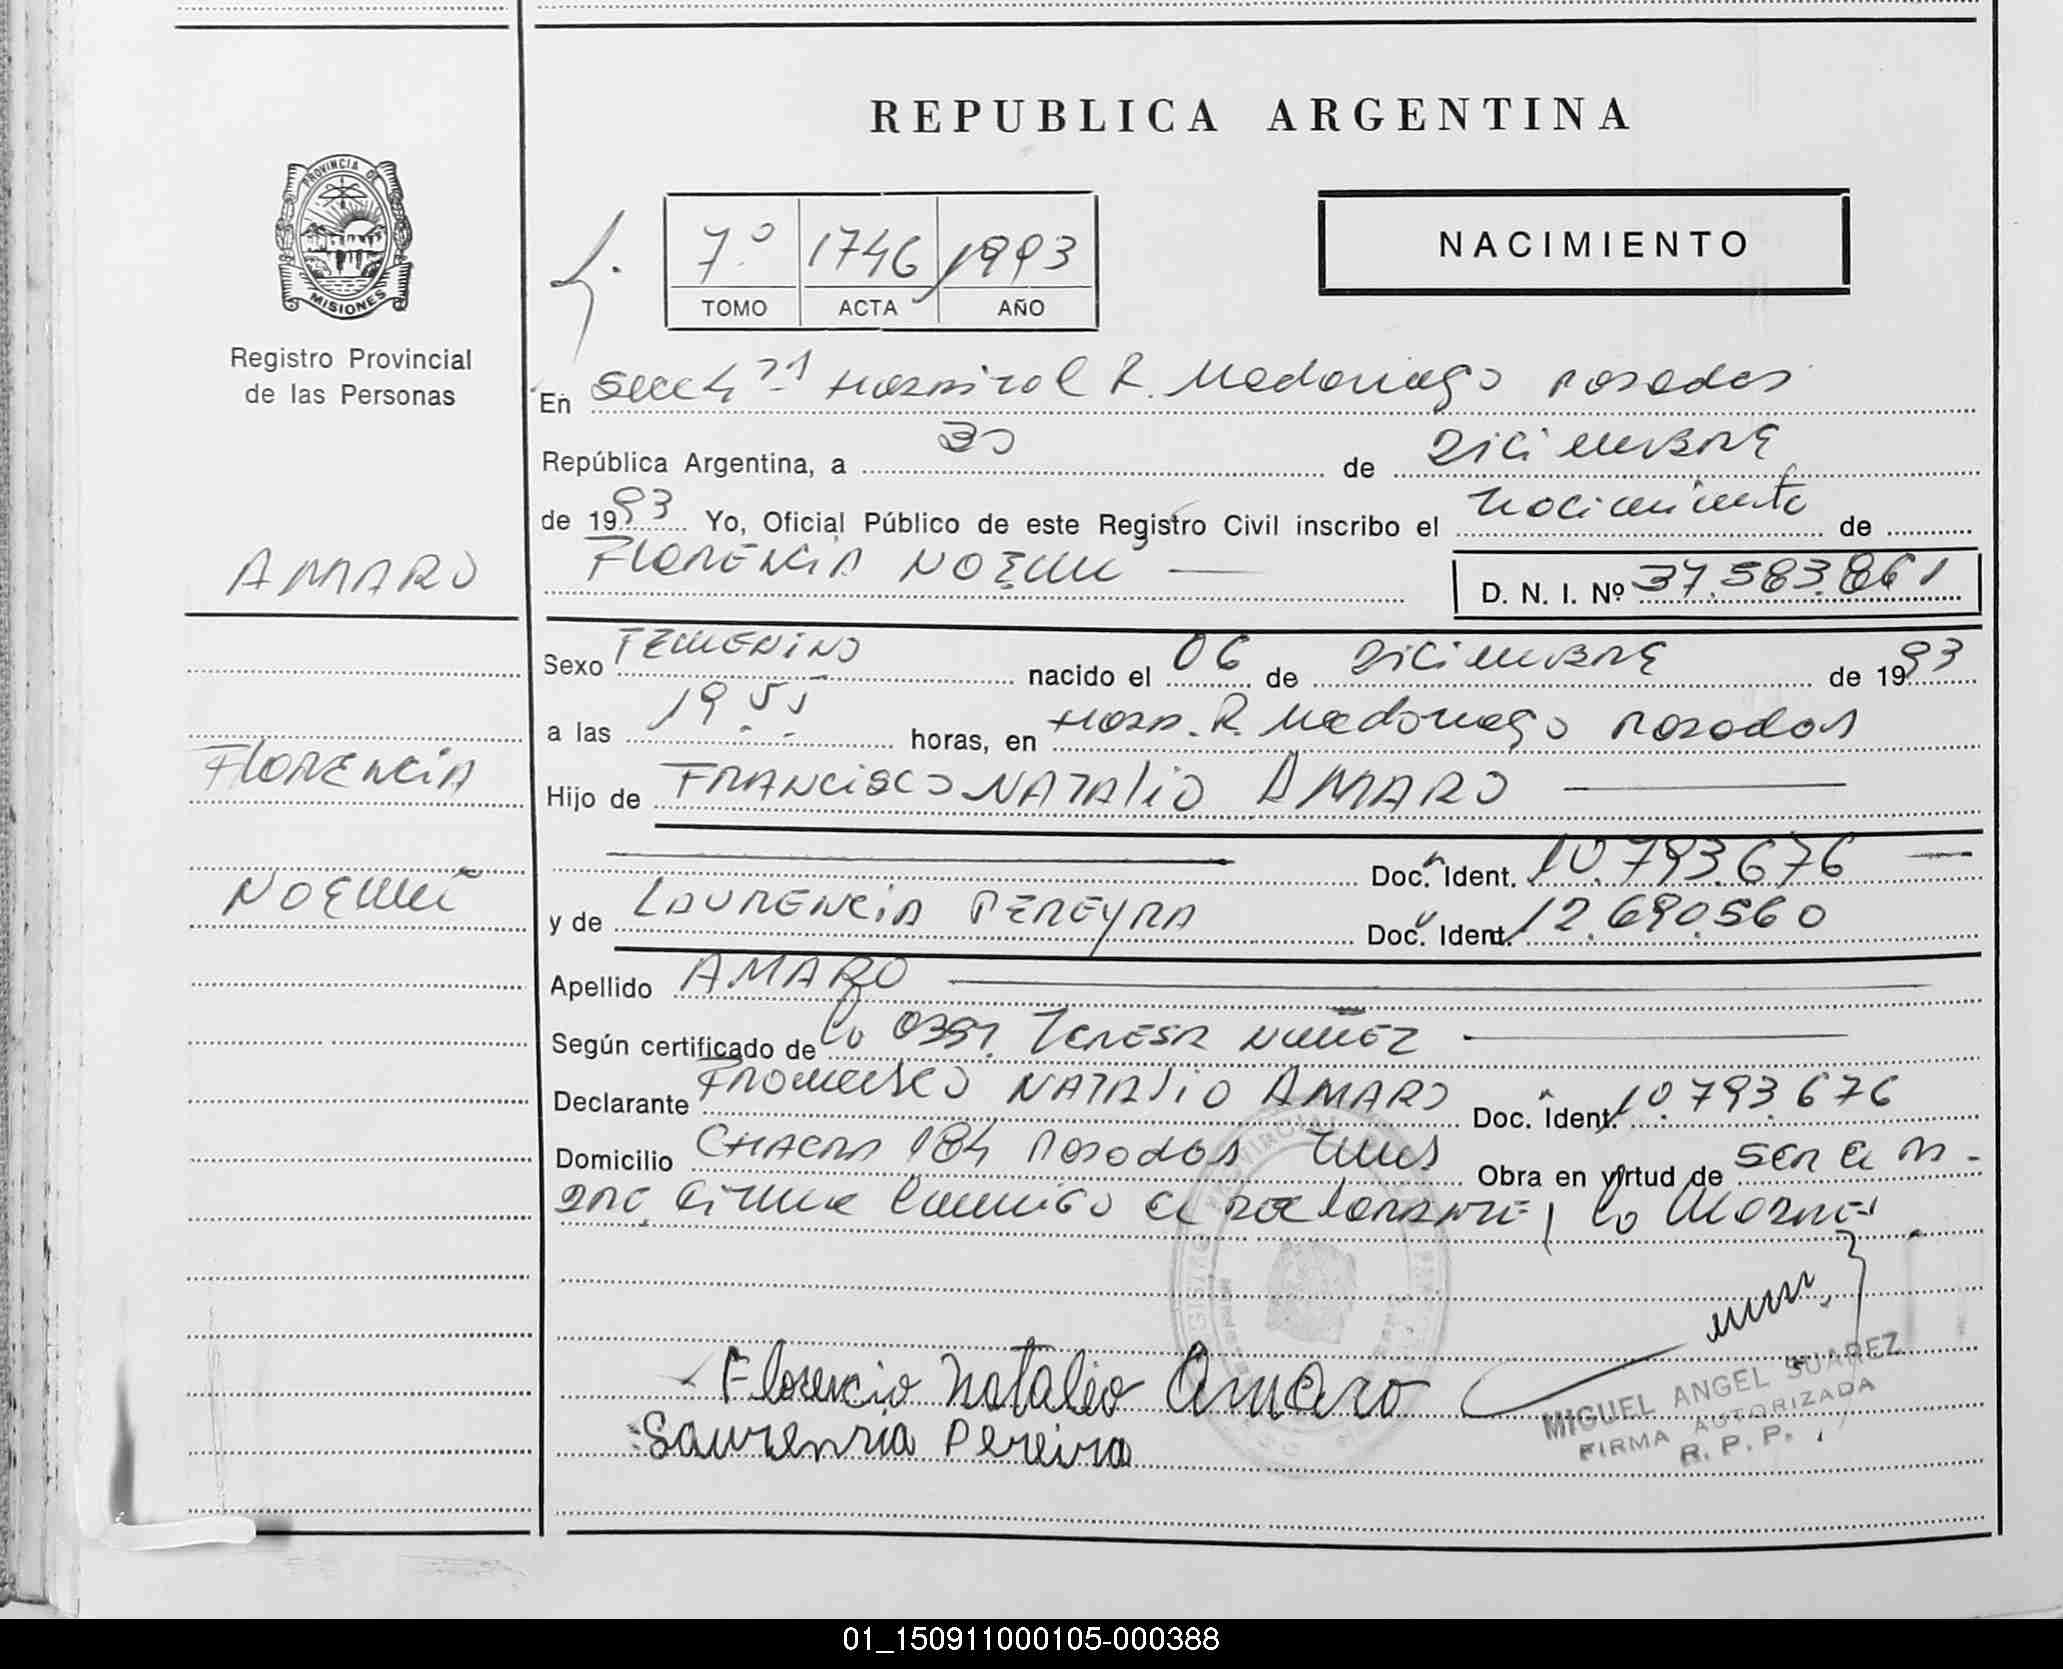 REPUBLICA ARGENTINA
PROVINCIA DE MISIONES
Registro Provincial
de las Personas
7º 1746 1993
TOMO ACTA AÑO
NACIMIENTO
En Secc 4 Hospital R. Madariaga Posadas
República Argentina, a 30 de Diciembre
de 1993 Yo, Oficial Público de este Registro Civil inscribo el nacimiento de
AMARO
FLORENCIA NOEMI
D. N. I. Nº 37.583.861
Sexo FEMENINO nacido el 06 de Diciembre de 1993
a las 19.55 horas, en Hosp. R. Madariaga Posadas
FLORENCIA
Hijo de FRANCISCO NATALIO AMARO
Doc. Ident. 10.793.676
NOEMI
y de LAURENCIA PEREYRA Doc. Ident. 12.690.560
Apellido AMARO
Según certificado de la Obst. TERESA NUÑEZ
Declarante Francisco NATALIO AMARO Doc. Ident. 10.793.676
Domicilio CHACRA 184 Posadas Mnes Obra en virtud de ser el pa-
dre, firma conmigo el declarante y la madre
Florencio Natalio Amaro
Saurenria Pereira
MIGUEL ANGEL SUAREZ
FIRMA AUTORIZADA
R. P. P.
01_150911000105-000388